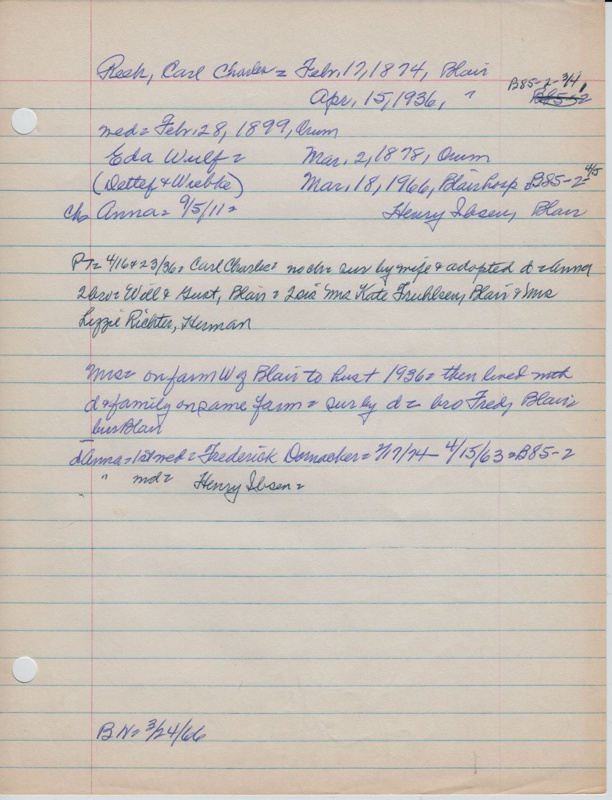 Rosh, Carl Charles = Febr. 17, 1874, Blair
Apr. 15, 1936, " B85-2-3/4,
med = Febr. 28, 1899, Orum
Eda Wulf = Mar. 2, 1878, Orum
(Detlef & Wiebke) Mar. 18, 1966, Blair hosp B85-2-4/5
ch = Anna = 9/5/11 = Henry Ibsen, Blair
PT = 4/16 & 23/36 = Carl Charles = no ch = sur by wife & adopted d = Anna
2 bro = Will & Gust, Blair = 2 sis = Mrs Kate Fruhlsen, Blair & Mrs
Lizzie Richter, Herman
Mrs = on farm W of Blair to hust 1936 = then lived with
d & family on same farm = sur by d = bro Fred, Blair =
bur Blair
d Anna = 1st med = Frederick Dornacker = 7/17/74 - 4/15/63 = B85-2
" md = Henry Ibsen =
BN = 3/24/66